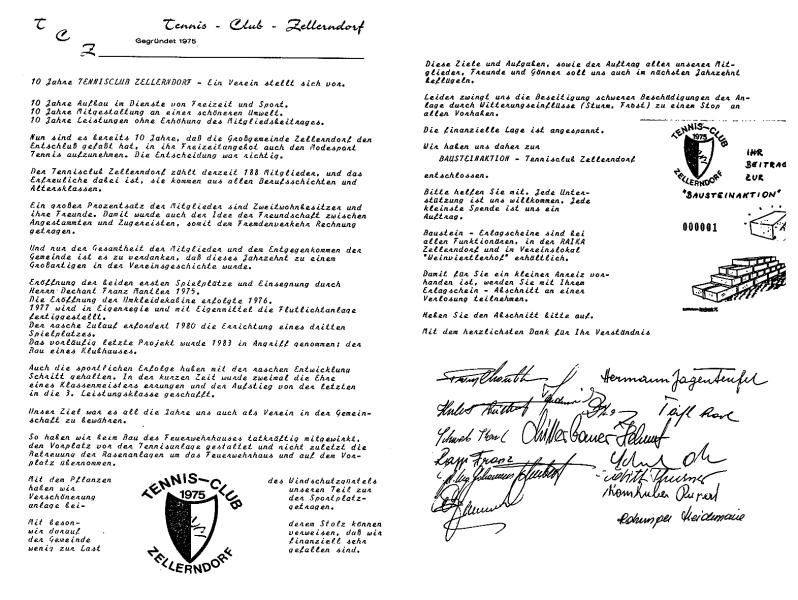 T
C
Z
Tennis - Club - Zellerndorf
Gegründet 1975
10 Jahre TENNISCLUB ZELLERNDORF - Ein Verein stellt sich vor.
10 Jahre Aufbau im Dienste von Freizeit und Sport.
10 Jahre Mitgestaltung an einer schöneren Umwelt.
10 Jahre Leistungen ohne Erhöhung des Mitgliedsbeitrages.
Nun sind es bereits 10 Jahre, daß die Großgemeinde Zellerndorf den
Entschluß gefaßt hat, in ihr Freizeitangebot auch den Modesport
Tennis aufzunehmen. Die Entscheidung war richtig.
Der Tennisclub Zellerndorf zählt derzeit 188 Mitglieder, und das
Erfreuliche dabei ist, sie kommen aus allen Berufsschichten und
Altersklassen.
Ein großer Prozentsatz der Mitglieder sind Zweitwohnbesitzer und
ihre Freunde. Damit wurde auch der Idee der Freundschaft zwischen
Angestammten und Zugereisten, somit dem Fremdenverkehr Rechnung
getragen.
Und nur der Gesamtheit der Mitglieder und dem Entgegenkommen der
Gemeinde ist es zu verdanken, daß dieses Jahrzehnt zu einem
Großartigen in der Vereinsgeschichte wurde.
Eröffnung der beiden ersten Spielplätze und Einsegnung durch
Herrn Dechant Franz Mantler 1975.
Die Eröffnung der Umkleidekabine erfolgte 1976.
1977 wird in Eigenregie und mit Eigenmittel die Flutlichtanlage
fertiggestellt.
Der rasche Zulauf erfordert 1980 die Errichtung eines dritten
Spielplatzes.
Das vorläufig letzte Projekt wurde 1983 in Angriff genommen: der
Bau eines Klubhauses.
Auch die sportlichen Erfolge haben mit der raschen Entwicklung
Schritt gehalten. In der kurzen Zeit wurde zweimal die Ehre
eines Klassenmeisters errungen und der Aufstieg von der letzten
in die 3. Leistungsklasse geschafft.
Unser Ziel war es all die Jahre uns auch als Verein in der Gemein-
schaft zu bewähren.
So haben wir beim Bau des Feuerwehrhauses tatkräftig mitgewirkt,
den Vorplatz vor der Tennisanlage gestaltet und nicht zuletzt die
Betreuung der Rasenanlagen um das Feuerwehrhaus und auf dem Vor-
platz übernommen.
Mit dem Pflanzen des Windschutzgürtels
haben wir unseren Teil zur
Verschönerung der Sportplatz-
anlage bei- getragen.
Mit beson- derem Stolz können
wir darauf verweisen, daß wir
der Gemeinde finanziell sehr
wenig zur Last gefallen sind.
TENNIS-CLUB
1975
ZELLERNDORF
Diese Ziele und Aufgaben, sowie der Auftrag aller unserer Mit-
glieder, Freunde und Gönner soll uns auch im nächsten Jahrzehnt
beflügeln.
Leider zwingt uns die Beseitigung schwerer Beschädigungen der An-
lage durch Witterungseinflüsse (Sturm, Frost) zu einem Stop an
allen Vorhaben.
Die finanzielle Lage ist angespannt.
Wir haben uns daher zur
BAUSTEINAKTION - Tennisclub Zellerndorf
entschlossen.
Bitte helfen Sie mit. Jede Unter-
stützung ist uns willkommen. Jede
kleinste Spende ist uns ein
Auftrag.
Baustein - Erlagscheine sind bei
allen Funktionären, in der RAIKA
Zellerndorf und im Vereinslokal
"Weinviertlerhof" erhältlich.
Damit für Sie ein kleiner Anreiz vor-
handen ist, werden Sie mit Ihrem
Erlagschein - Abschnitt an einer
Verlosung teilnehmen.
Heben Sie den Abschnitt bitte auf.
Mit dem herzlichsten Dank für Ihr Verständnis
TENNIS-CLUB
1975
ZELLERNDORF
IHR
BEITRAG
ZUR
"BAUSTEINAKTION"
000001
Hermann Jagenteufel
Franz